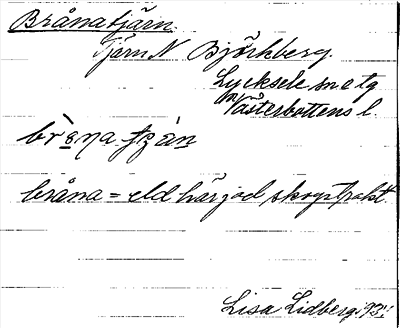 Brånatjärn.
Tjärn N Björkberg.
Lycksele sn o tg
Västerbottens l.
bråna = eldhärjad skogstrakt.
Lisa Lidberg. 1935